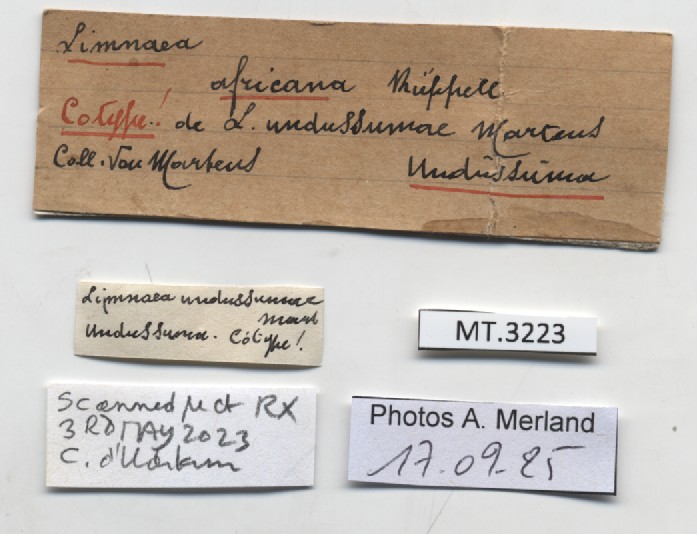 Limnaea
africana Rüppell
Cotype! de L. undussumae Martens
Coll. von Martens Undussuma
Limnaea undussumae
Mart
Undussuma. Cotype!
MT.3223
Scanned µct RX
3RD MAY 2023
C. d'Udekem
Photos A. Merland
17.09-25